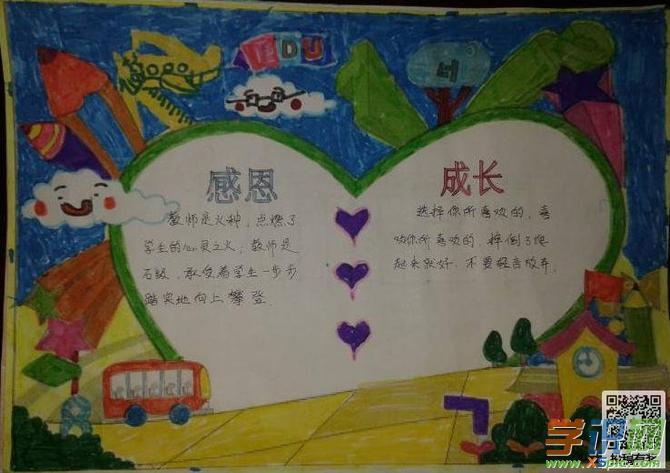 EDU
感恩
教师是火种，点燃了
学生的心灵之火；教师是
石级，承受着学生一步步
踏实地向上攀登
成长
选择你所喜欢的，喜
欢你所喜欢的，摔倒了爬
起来就好，不要轻言放弃。
学识网